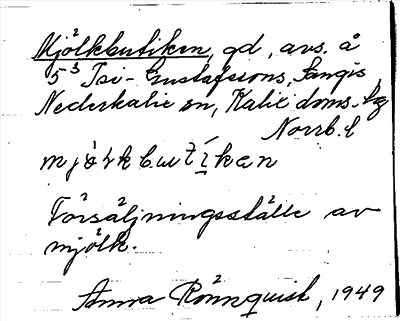 Mjölkbutiken, gd, avs. å
5³ Tsi-Gustafssons, Sangis
Nederkalix sn, Kalix doms. tg
Norrb. l
mjör̀kbutíkan
Försäljningsställe av
mjölk.
Anna Rönnquist, 1949